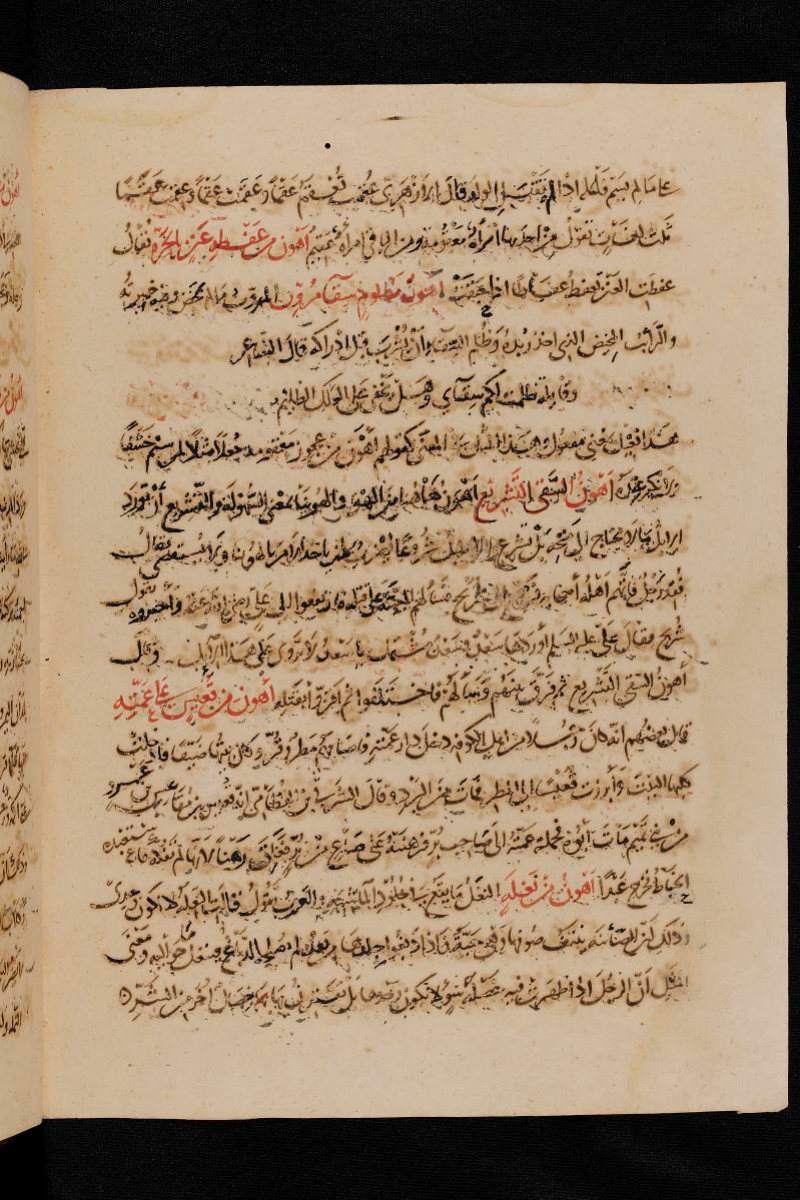 على ما لم يسم فاعله اذا لم تقبل الولد قال الازهري عقمت تعقم عقما وعقمت عقما وعقمت عقما
ثلث لغات تقول من احديها امرأة معقومة ومن الباقي امرأة عقيم اهون من عفطة عنز بالحرة يقال
عفطت العنز تعفط عفطا اذا حبقت اهون مظلوم سقاء مروب المروب ما لم يمخض وفيه خميرته
والرائب المخيض الذي اخذ زبده وظلم السقاء ان يشرب قبل ادراكه قال الشاعر
وقائلة ظلمت لكم سقائي وهل يخفى على العكد الظليم
اهون من عجوز معقومة جعلا مثلا لمن يستخف
ولا نكير عنده اهون السقي التشريع اهون هاهنا من الهون والهوينا بمعنى السهولة والتشريع ان تورد
ابل ماء لا يحتاج الى متحه بل تشرع الابل شروعا يضرب لمن ياخذ الامر بالهوينا ولا يستقصي يقال
فقد رجل فاتهم اهله اصحابه فرفع الى شريح فسألهم البينة على قتله فارتفعوا الى علي رضي الله عنه واخبروه بقول
شريح فقال علي عليه السلم اوردها سعد وسعد مشتمل يا سعد لا تروى على هذا الابل وقال
اهون السقي التشريع ثم فرق بينهم وسألهم فاختلفوا ثم اقروا بقتله اهون من قعيس على عمته
قال بعضهم انه كان رجلا من اهل الكوفة دخل دار عمته فاصابهم مطر وقر وكان بيتها ضيقا فادخلت
كلبها البيت وابرزت قعيسا الى المطر فمات من البرد وقال الشرقي بن القطامي انه قعيس بن مقاعس بن عمرو
من بني تميم مات ابوه فحملته عمته الى صاحب بر فرهنته على صاع من بر فغلق رهنا لانها لم تفكه فاستعبده
الحناط فخرج عبدا اهون من نغلة النغل ما يقع في جلود الماشية والعرب تقول قالت النغلة لا اكون وحدي
وذلك ان الضائنة ينتف صوفها وهي حية فاذا دبغوا جلدها لم يصلح الدباغ فينغل ما حواليه ومعنى
المثل ان الرجل اذا ظهرت فيه خصلة سوء لا تكون وحدها بل تقترن بها خصال اخر من الشر